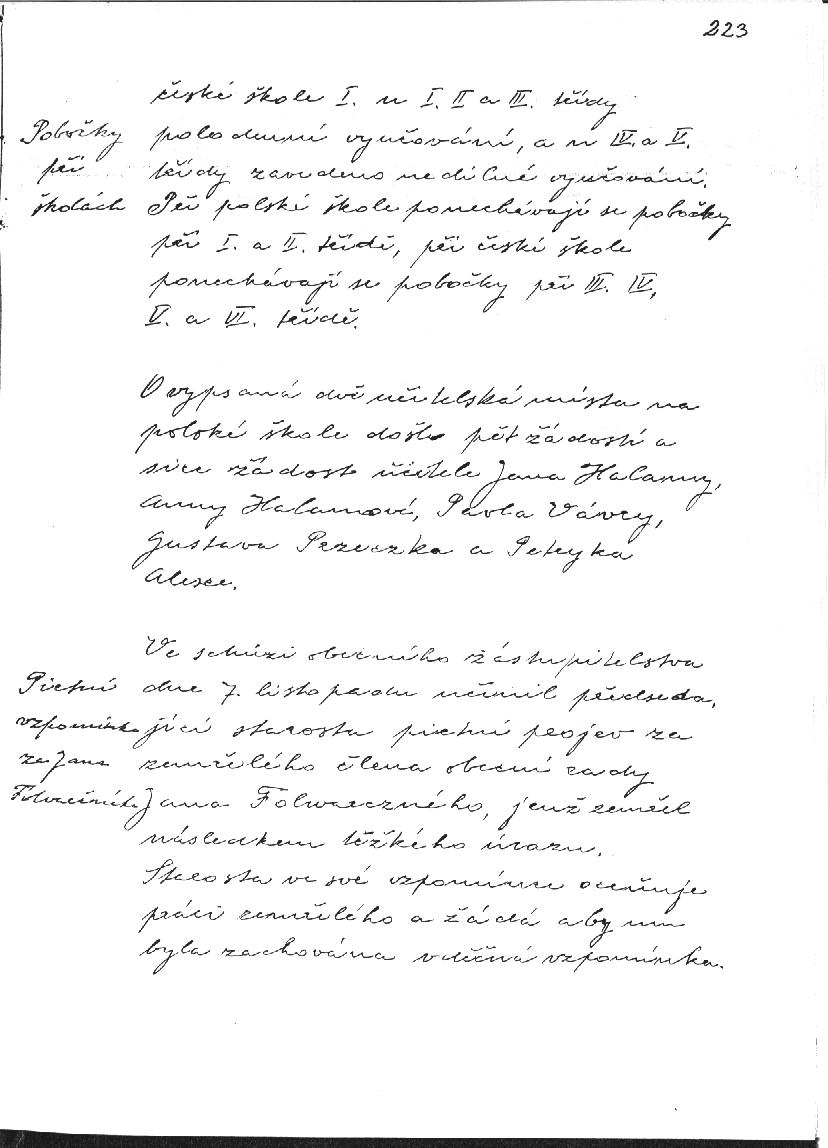 223
české škole I. u I. II a III. třídy
Pobočky polodenní vyučování, a u IV. a V.
při třídy zavedeno nedílné vyučování.
školách Při polské škole ponechávají se pobočky
při I. a II. třídě, při české škole
ponechávají se pobočky při III. IV,
V. a VI. třídě.
O vypsaná dvě učitelská místa na
polské škole došlo pět žádostí a
sice žádost učitele Jana Halamy,
Anny Halamové, Pavla Vávry,
Gustava a
Ve schůzi obecního zástupitelstva
Pietní dne 7. listopadu učinil předseda,
vzpomínka jící starosta pietní projev za
za Jana zemřelého člena obecní rady
Jana Folwarczného, jenž zemřel
následkem těžkého úrazu.
Starosta ve své vzpomínce oceňuje
práci zemřelého a žádá aby mu
byla zachována vděčná vzpomínka.